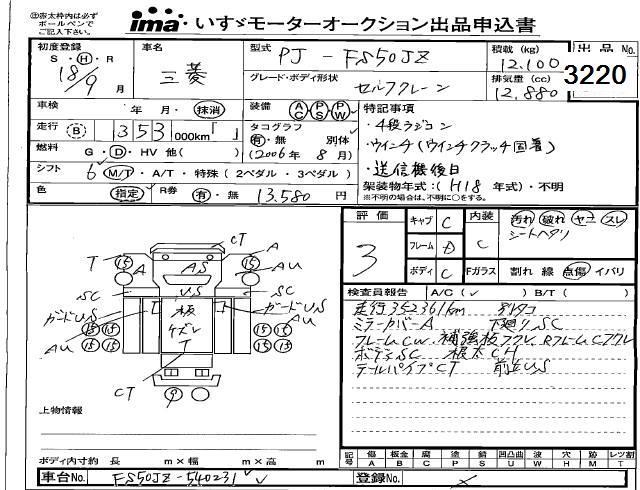 ㊟赤太枠内は必ず
ボールペンで
ご記入下さい。
ima いすゞモーターオークション出品申込書
初度登録
S・H・R
18/9 月
車名
三菱
型式 PJ-FS50JZ
グレード・ボディ形状
セルフクレーン
積載 (kg)
12.100
排気量 (cc)
12.880
出品 No.
3220
車検 年・月・抹消
装備 AC PS PW
走行 B 353 000km「 」
タコグラフ
有・無 別体
(2006年 8月)
燃料 G・D・HV 他( )
シフト 6 M/T・A/T・特殊(2ペダル・3ペダル)
色 指定
R券 有・無 13.580 円
特記事項
・4段ラジコン
・ウインチ(ウインチクラッチ固着)
・送信機後日
架装物年式:(H18年式)・不明
※不明の場合は、不明に○をする。
評価
3
キャブ C
フレーム D
ボディ C
内装 C
汚れ 破れ ヤコ スレ
シートヘタリ
Fガラス 割れ 線 点傷 イバリ
検査員報告 A/C( ✓ ) B/T( )
走行352361km
ミラーカバーA 下廻りSC
フレームCW 補強板フクレ RフレームCフクレ
ボデーSC 根太CH
テールパイプCT
CT
T A
15 15
A AS AU
SC US SC
ガードUS T 板 T ガードUS
15 15 15 15
AU ケズレ AU
15 15 T 15 15
CT
9
上物情報
ボディ内寸約 長 m×幅 m×高 m
記号 傷 板金 腐 塗 錆 凹凸曲 波 穴 跡 レンズ割
A B C P S U W H M T
車台No. FS50JZ-540231
登録No.